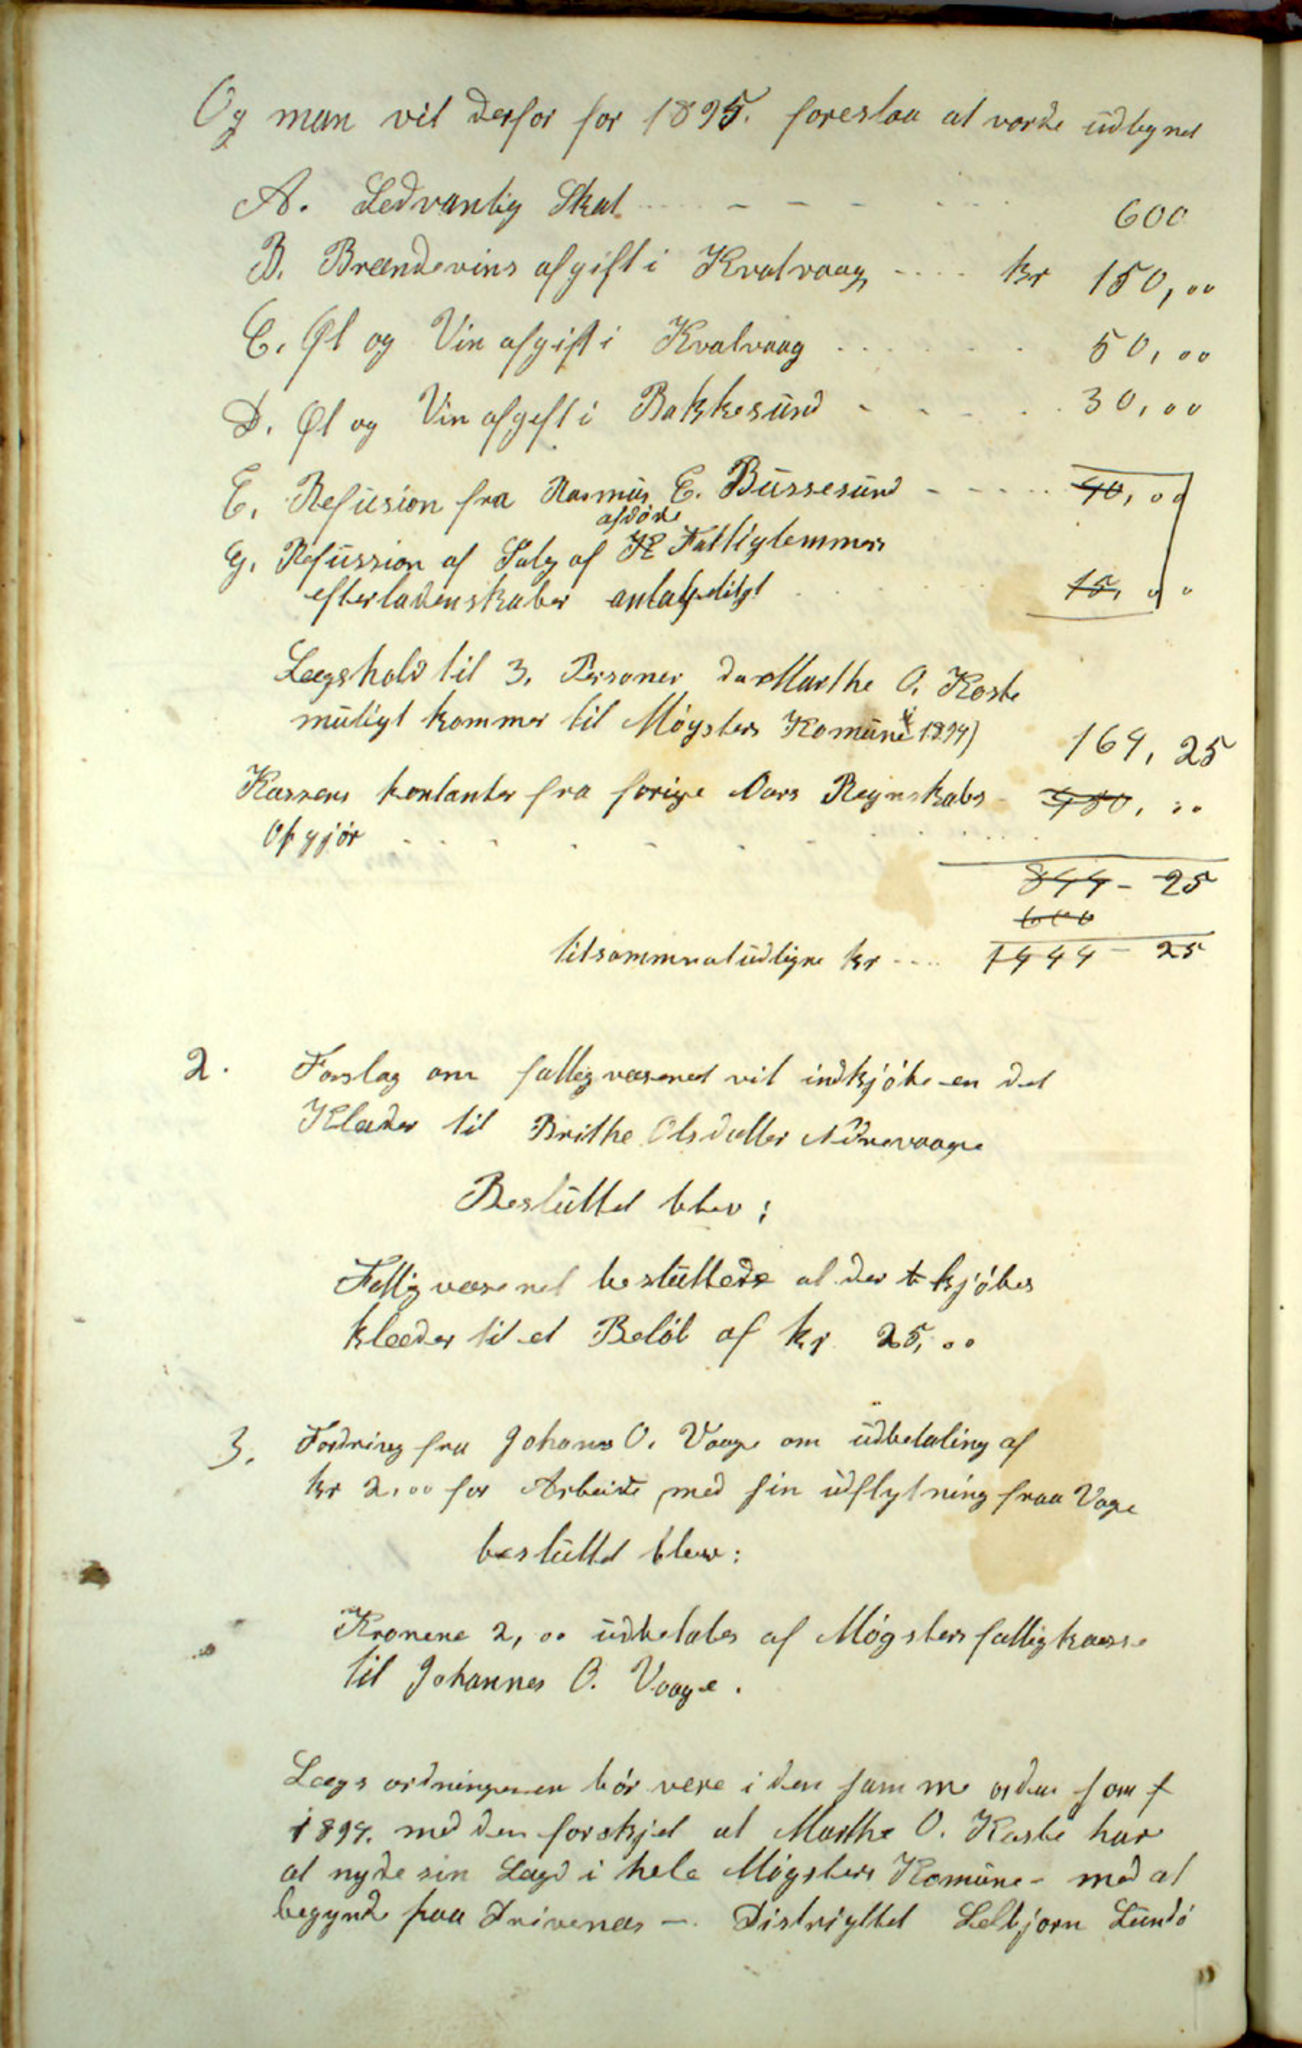 Og man vil derfor for 1895. foreslaa at vorde udlignet
A. Sedvanlig Skat - - - - 600
B. Brændevins afgift i Kvalvaag - - - - kr 150,00
C. Øl og Vin afgift i Kvalvaag - - - - 50,00
D. Øl og Vin afgift i Bakkesund - - - - 30,00
E. Refusion fra Rasmus E. Bussesund - - - - 40,00
afdøde
G. Refussion af Salg af Fattiglemmers
efterladenskaber antageligt 15,00
Lægshold til 3. Personer da Marthe O. Kaste
muligt kommer til Møgsters Komune i 1894) 164,25
Kassens kontanter fra forige Aars Regnskabs
Opgjør - - - - 480,00
844 - 25
600
tilsammen at udligne kr - - - - 1444 - 25
2. Forslag om fattigvæsenet vil indkjøbe en del
Klæder til Brithe Olsdatter Nørevaage
Besluttet blev:
Fattigvæsenet besluttede at der kjøbes
klæder til et Beløb af kr 25,00
3. Fordring fra Johans O. Vaage om udbetaling af
kr 2,00 for Arbeide med sin udflytning fraa Vage
besluttet blev:
Kronene 2,00 udbetales af Møgsters fattigkasse
til Johannes O. Vaage.
Lægsordningen bør være i den samme orden som
1894. med den forskjel at Marthe O. Kaste har
at nyde sin Lægd i hele Møgsters Komune - med at
begynde paa Drivenes -. Distrigttet Selbjorn Lundø